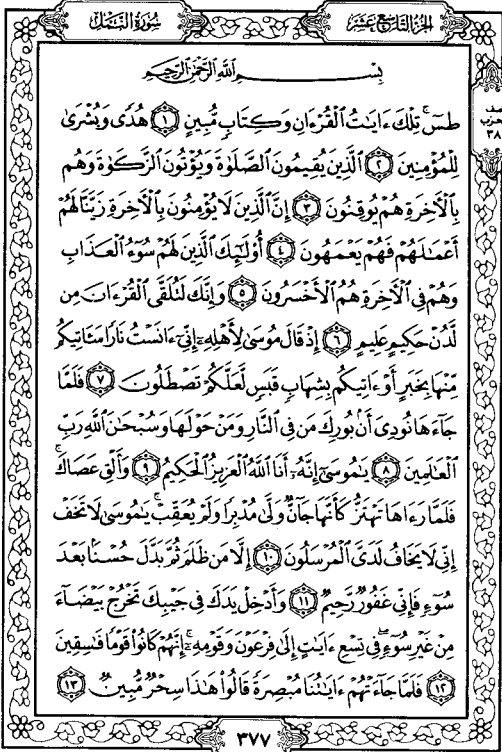 سُورَةُ النَّمْلِ
الجُزْءُ التَّاسِعَ عَشَرَ
بِسْمِ ٱللَّهِ ٱلرَّحْمَٰنِ ٱلرَّحِيمِ
طسٓۚ تِلْكَ ءَايَٰتُ ٱلْقُرْءَانِ وَكِتَابٍ مُّبِينٍ ١ هُدًى وَبُشْرَىٰ
لِلْمُؤْمِنِينَ ٢ ٱلَّذِينَ يُقِيمُونَ ٱلصَّلَوٰةَ وَيُؤْتُونَ ٱلزَّكَوٰةَ وَهُم
بِٱلْءَاخِرَةِ هُمْ يُوقِنُونَ ٣ إِنَّ ٱلَّذِينَ لَا يُؤْمِنُونَ بِٱلْءَاخِرَةِ زَيَّنَّا لَهُمْ
أَعْمَٰلَهُمْ فَهُمْ يَعْمَهُونَ ٤ أُو۟لَٰٓئِكَ ٱلَّذِينَ لَهُمْ سُوٓءُ ٱلْعَذَابِ
وَهُمْ فِى ٱلْءَاخِرَةِ هُمُ ٱلْأَخْسَرُونَ ٥ وَإِنَّكَ لَتُلَقَّى ٱلْقُرْءَانَ مِن
لَّدُنْ حَكِيمٍ عَلِيمٍ ٦ إِذْ قَالَ مُوسَىٰ لِأَهْلِهِۦٓ إِنِّىٓ ءَانَسْتُ نَارًا سَـَٔاتِيكُم
مِّنْهَا بِخَبَرٍ أَوْ ءَاتِيكُم بِشِهَابٍ قَبَسٍ لَّعَلَّكُمْ تَصْطَلُونَ ٧ فَلَمَّا
جَآءَهَا نُودِىَ أَنۢ بُورِكَ مَن فِى ٱلنَّارِ وَمَنْ حَوْلَهَا وَسُبْحَٰنَ ٱللَّهِ رَبِّ
ٱلْعَٰلَمِينَ ٨ يَٰمُوسَىٰٓ إِنَّهُۥٓ أَنَا ٱللَّهُ ٱلْعَزِيزُ ٱلْحَكِيمُ ٩ وَأَلْقِ عَصَاكَۚ
فَلَمَّا رَءَاهَا تَهْتَزُّ كَأَنَّهَا جَآنٌّ وَلَّىٰ مُدْبِرًا وَلَمْ يُعَقِّبْۚ يَٰمُوسَىٰ لَا تَخَفْ
إِنِّى لَا يَخَافُ لَدَىَّ ٱلْمُرْسَلُونَ ١٠ إِلَّا مَن ظَلَمَ ثُمَّ بَدَّلَ حُسْنًۢا بَعْدَ
سُوٓءٍ فَإِنِّى غَفُورٌ رَّحِيمٌ ١١ وَأَدْخِلْ يَدَكَ فِى جَيْبِكَ تَخْرُجْ بَيْضَآءَ
مِنْ غَيْرِ سُوٓءٍۖ فِى تِسْعِ ءَايَٰتٍ إِلَىٰ فِرْعَوْنَ وَقَوْمِهِۦٓۚ إِنَّهُمْ كَانُوا۟ قَوْمًا فَٰسِقِينَ
١٢ فَلَمَّا جَآءَتْهُمْ ءَايَٰتُنَا مُبْصِرَةً قَالُوا۟ هَٰذَا سِحْرٌ مُّبِينٌ ١٣
٣٧٧